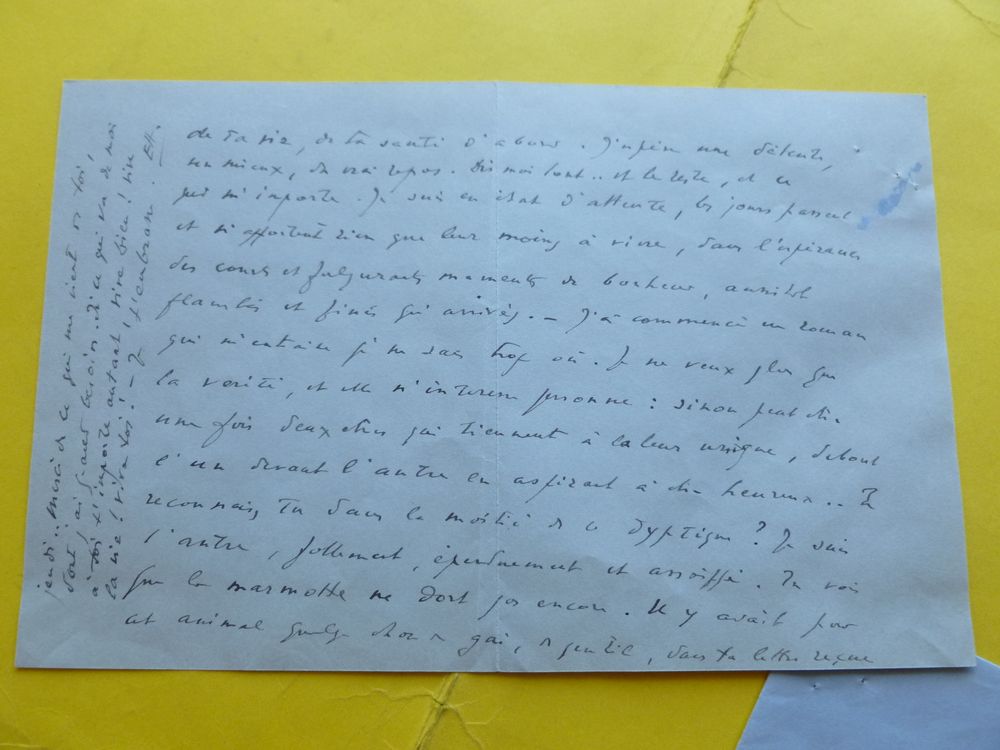 de ta vie, de ta santé d'abord. J'espère une détente,
un mieux, du vrai repos. Dis moi tout.. et le reste, et ce
qui m'importe. Je suis en état d'attente, les jours passent
et n'apportent rien que leur moins à vivre, dans l'espérance
des courts et fulgurants moments de bonheur, aussitôt
flambés et finis qu'arrivés. — J'ai commencé un roman
qui m'entraîne je ne sais trop où. Je ne veux plus que
la vérité, et elle n'intéresse personne : sinon peut être
une fois deux êtres qui tiennent à la leur unique, debout
l'un devant l'autre en aspirant à être heureux.. Te
reconnais tu dans la moitié de ce dyptique ? Je suis
l'autre, follement, éperdument et assoiffé. Tu vois
que la marmotte ne dort pas encore. Il y avait pour
cet animal quelque chose de gai, de gentil, dans ta lettre reçue
jeudi.. Merci de ce qui me vient de toi,
dont j'ai grand besoin. Si ce qui va de moi
à toi t'importe autant, vive bien ! vive
la vie ! vive toi ! — Je t'embrasse.